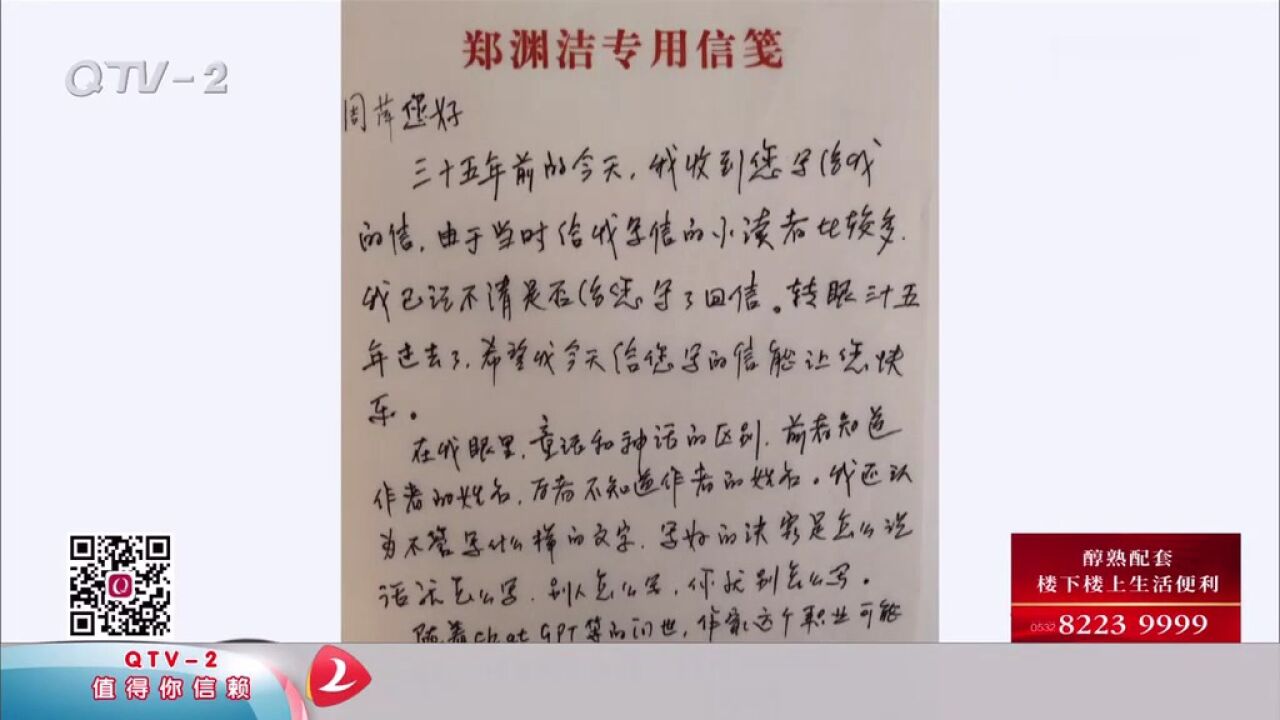 QTV-2
郑渊洁专用信笺
周萍您好
三十五年前的今天，我收到您写给我
的信，由于当时给我写信的小读者比较多，
我已记不清是否给您写了回信。转眼三十五
年过去了，希望我今天给您写的信能让您快
乐。
在我眼里，童话和神话的区别，前者知道
作者的姓名，后者不知道作者的姓名。我还认
为不管写什么样的文字，写好的诀窍是怎么说
话就怎么写，别人怎么写，你就别怎么写。
随着chat GPT等的问世，作家这个职业可能
醇熟配套
楼下楼上生活便利
0532 8223 9999
QTV-2
值得你信赖